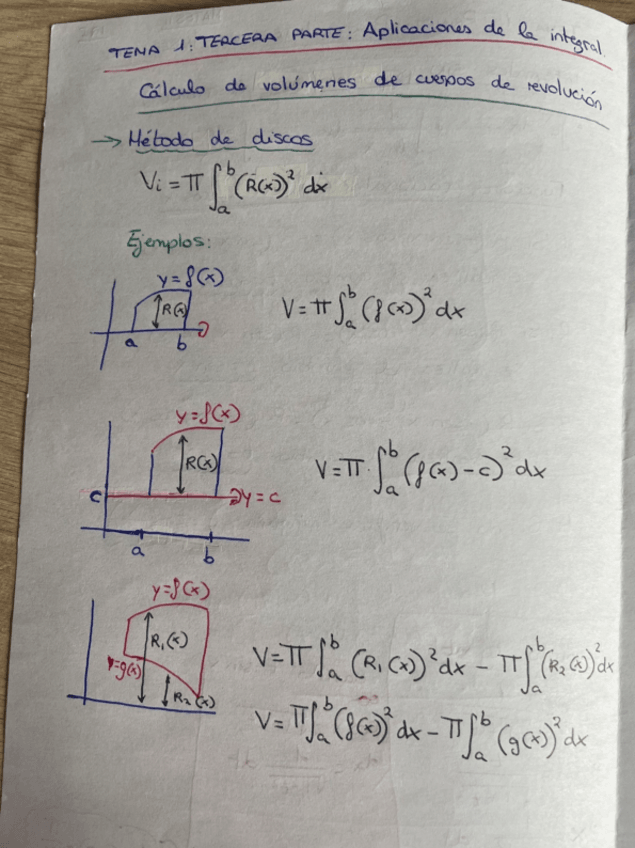 TEMA 1: TERCERA PARTE: Aplicaciones de la integral.
Cálculo de volúmenes de cuerpos de revolución
→ Método de discos
Vi = π ∫_a^b (R(x))² dx
Ejemplos:
y=f(x)
R(x)
a b
V = π ∫_a^b (f(x))² dx
y=f(x)
R(x)
c
y=c
a b
V = π · ∫_a^b (f(x) - c)² dx
y=f(x)
R₁(x)
y=g(x)
R₂(x)
V = π ∫_a^b (R₁(x))² dx - π ∫_a^b (R₂(x))² dx
V = π ∫_a^b (f(x))² dx - π ∫_a^b (g(x))² dx